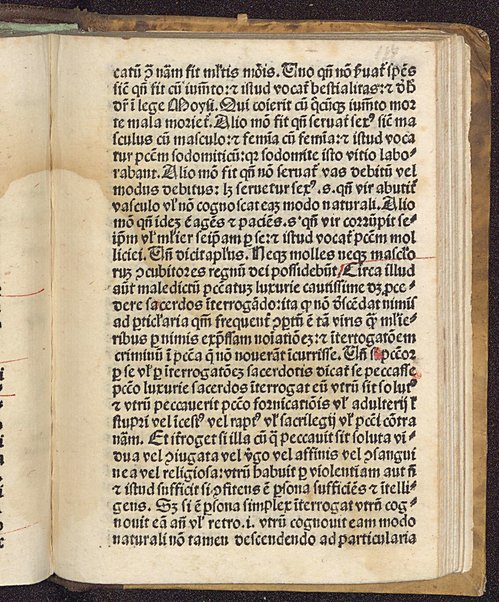 catū ꝯ nāꝫ fit ml'tis mōis. Uno qn̄ nō ẜuat᷑ sp̄es
sic̄ qn̄ fit cū iumēto: ⁊ istud vocat᷑ bestialitas: ⁊ ð h̄
dr̄ i lege Moysi. Qui coierit cū q̄cūqꝫ iumēto mor
te mala moriet᷑. Alio mō fit qn̄ seruat᷑ sexꝰ sic̄ ma
sculus cū masculo: ⁊ femīa cū femīa: ⁊ istud voca
tur pctm̄ sodomiticū: qꝛ sodomite isto vitio labo⸗
rabant. Alio mō fit qn̄ nō seruat᷑ vas debitū vel
modus debitus: lꝫ seruetur sexꝰ .s. qn̄ vir abutit᷑
vasculo vl' nō cognoscat eaꝫ modo naturali. Alio
mō qn̄ ideꝫ ē agēs ⁊ paciēs .s. qn̄ vir corrūpit se
ip̄m vl' ml'ier seip̄am ꝑ se: ⁊ istud vocat᷑ pctm̄ mol
liciei. Un̄ dicit apl'us. Neqꝫ molles neqꝫ mascl'o
ruꝫ ꝯcubitores regnū dei possidebūt. Circa illud
aūt maledictū pctm̄ luxurie cautissime dꝫ ꝓce⸗
dere sacerdos īterrogādo: ita ꝙ nō dēscēdat nimiū
ad ꝑticl'aria qm̄ frequent᷑ ꝯꝑtū ē tā viris qꝫ ml'ie⸗
ribus ꝑ nimis exp̄ssam noīationeꝫ: ⁊ īterrogatōeꝫ
criminū ī pctā q̄ nō nouerāt īcurrisse. Un̄ si pctōr
ꝑ se vl' ꝑ īterrogatōeꝫ sacerdotis dicat se peccasse
pctō luxurie sacerdos īterroget eū vtrū sit solutꝰ
⁊ vtrū peccauerit pctō fornicatiōis vl' adulterij l'
stupri vel īcestꝰ vel raptꝰ vl' sacrilegij vl' pcti cōtra
nāꝫ. Et īterroget si illa cū q̄ peccauit sit soluta vi⸗
dua vel ꝯiugata vel v'go vel affinis vel ꝯsangui
nea vel religiosa: vtrū habuit ꝑ violentiam aut n̄
⁊ istud sufficit si ꝯfitens ē ꝑsona sufficiēs ⁊ ītelli⸗
gens. Sꝫ si ē ꝑsona simplex īterroget vtrū cog⸗
nouit eā an̄ vl' retro .i. vtrū cognouit eam modo
naturali nō tameu descendendo ad particularia